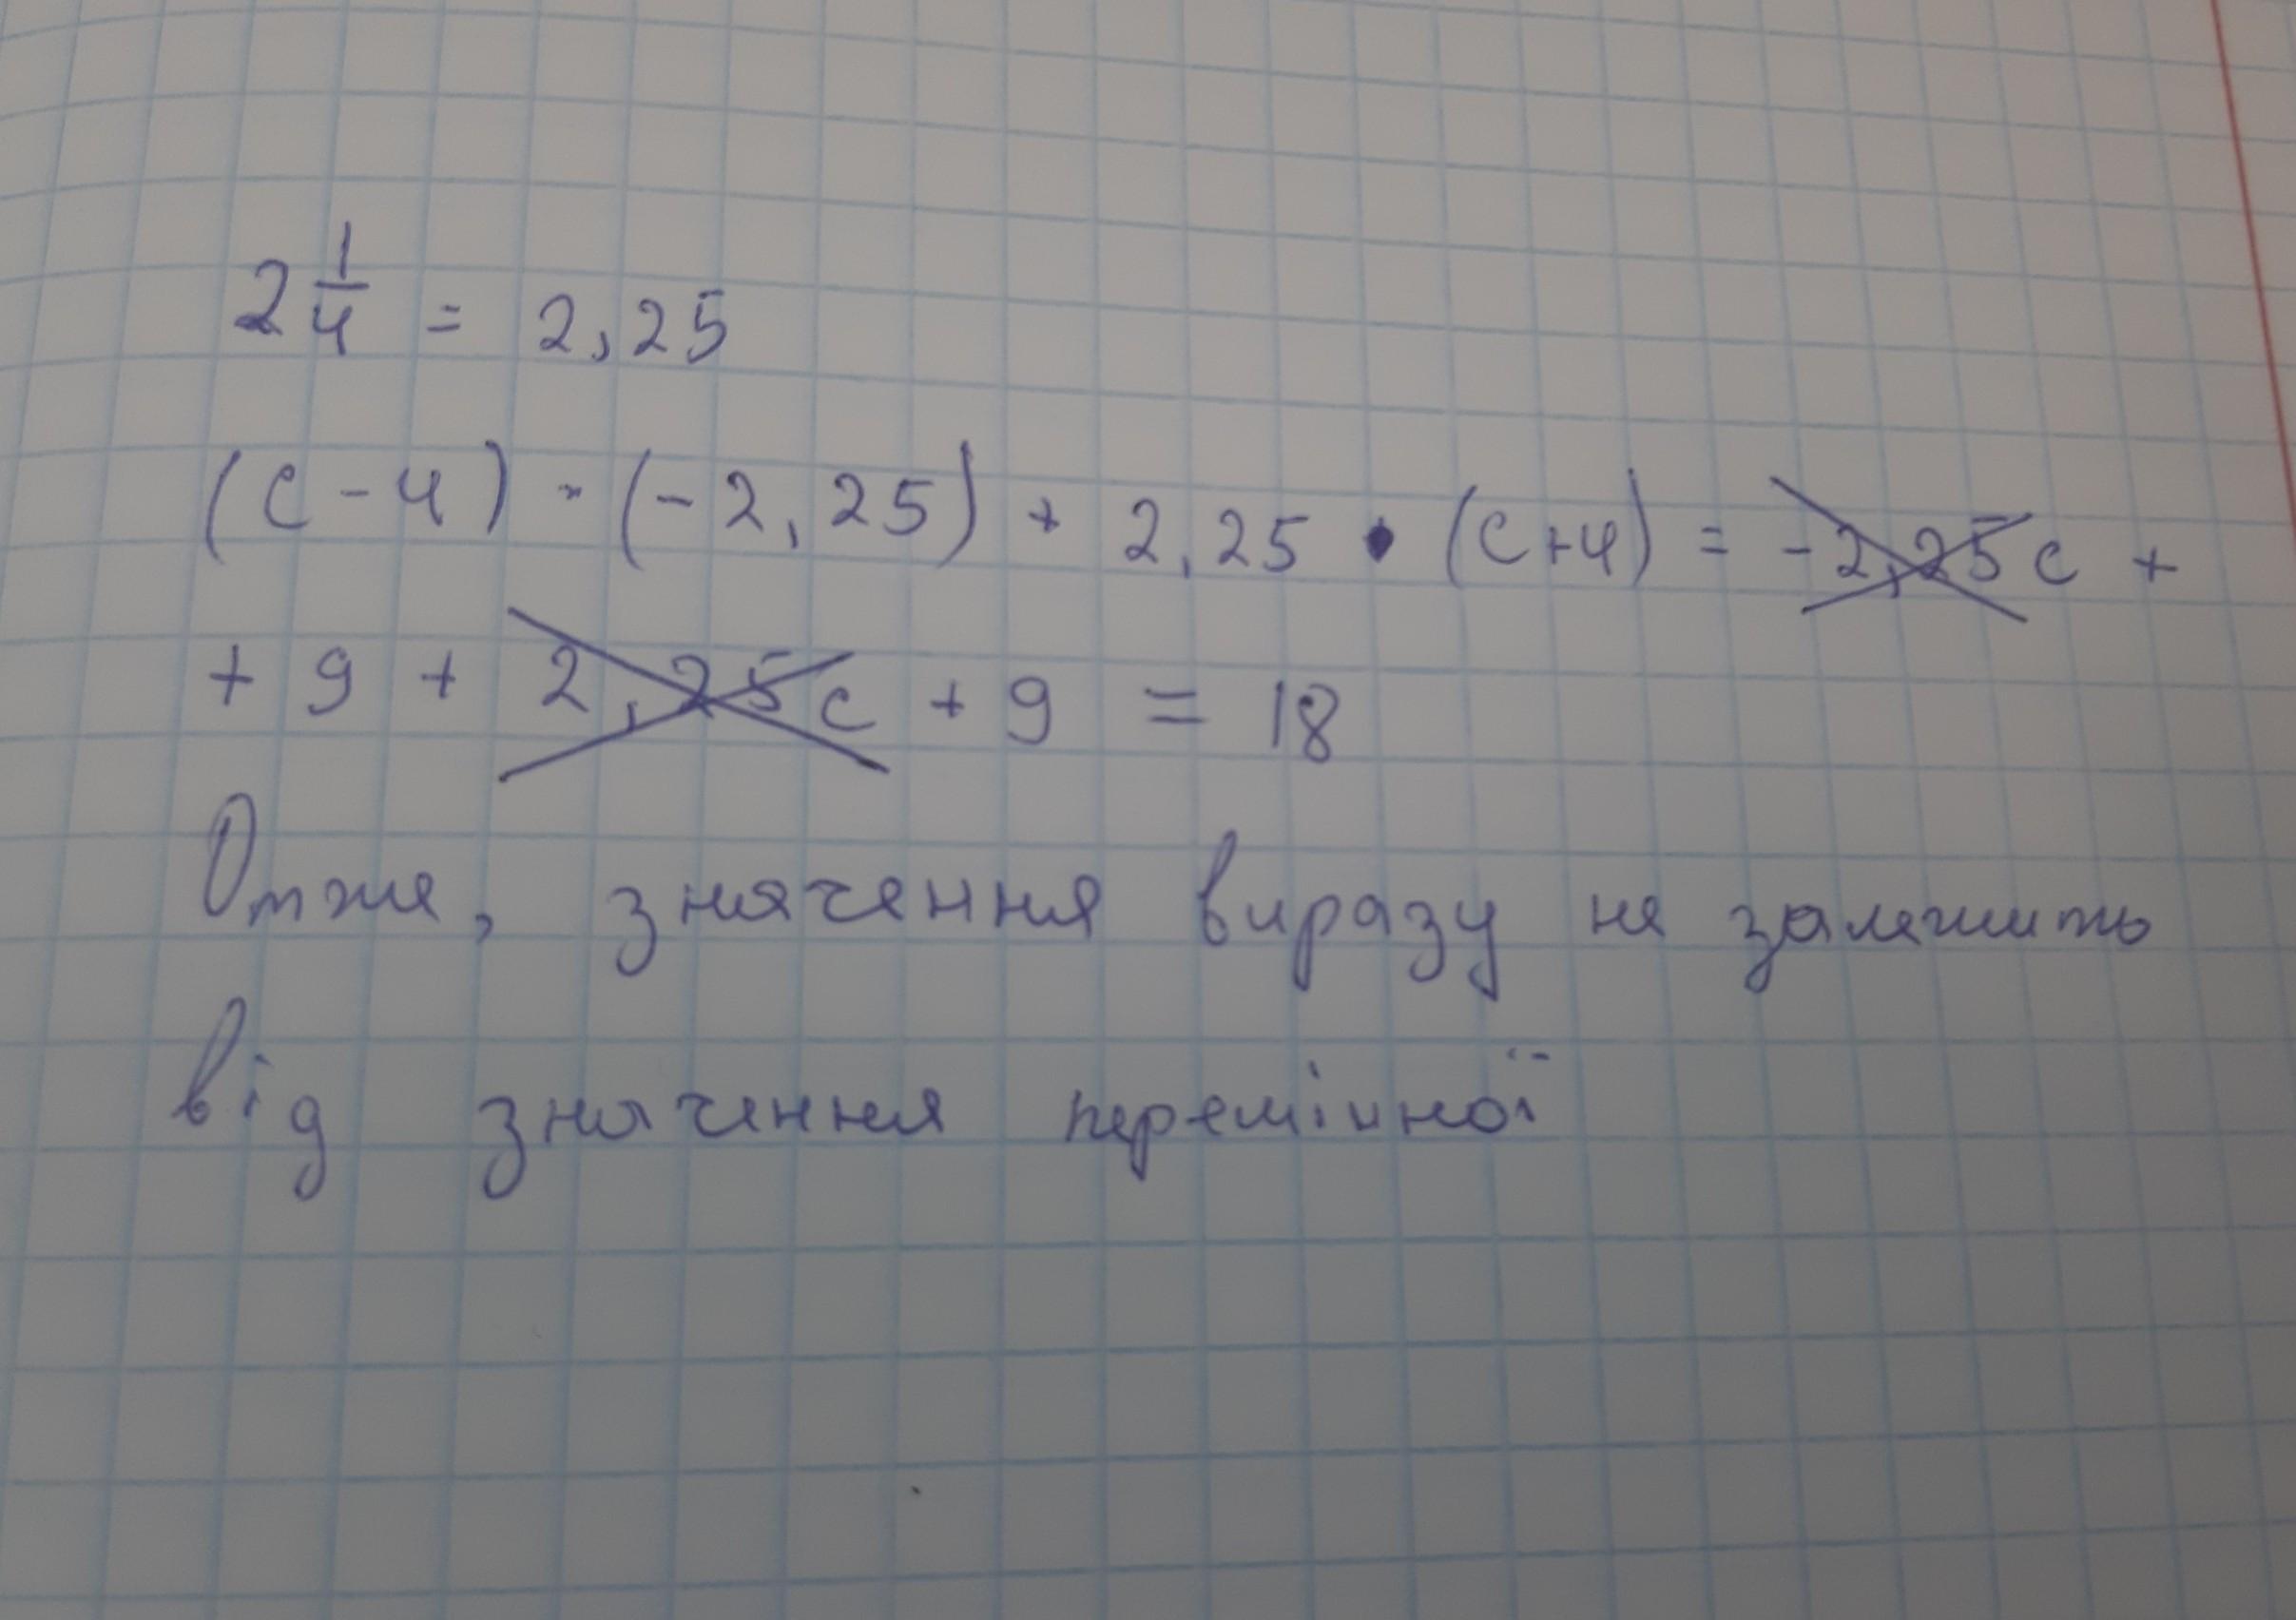 2 1/4 = 2,25
(c - 4) · (-2,25) + 2,25 · (c+4) = -2,25c +
+ 9 + 2,25c + 9 = 18
Отже, значення виразу не залежить
від значення перемінної